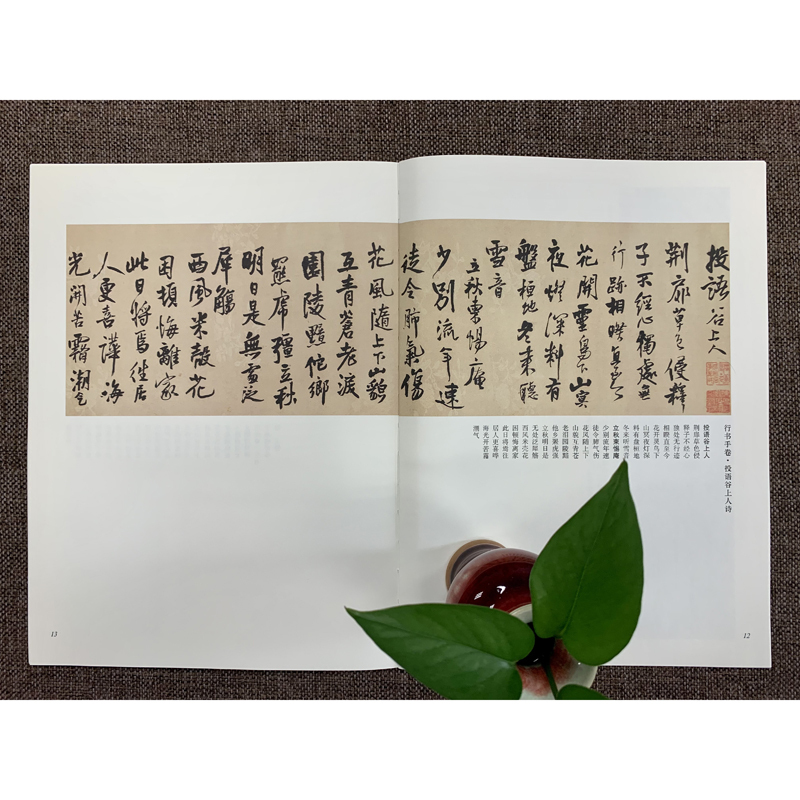 投語谷上人
荆扉草色侵釋
子不經心獨處無
行跡相暎直至今
花開靈鳥下山冥
夜燈深料有
盤桓地冬来聽
雪音
立秋柬惕庵
少别流年速
徒令肺氣傷
花風隨上下山貌
互青蒼老淚
園陵黯他鄉
羆虎彊立秋
明日是無處泛
犀觴
西風米殼花
困頓悔離家
此日將焉往居
人更喜譁海
光開苦霾潮气
行书手卷·投语谷上人诗
投语谷上人
荆扉草色侵
释子不经心
独处无行迹
相暎直至今
花开灵鸟下
山冥夜灯深
料有盘桓地
冬来听雪音
立秋柬惕庵
少别流年速
徒令肺气伤
花风随上下
山貌互青苍
老泪园陵黯
他乡罴虎强
立秋明日是
无处泛犀觞
西风米壳花
困顿悔离家
此日将焉往
居人更喜哗
海光开苦霾
潮气
12
13